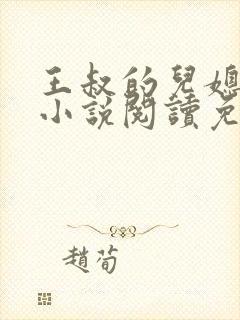 王叔的兒媳
小說閱讀免
趙荀